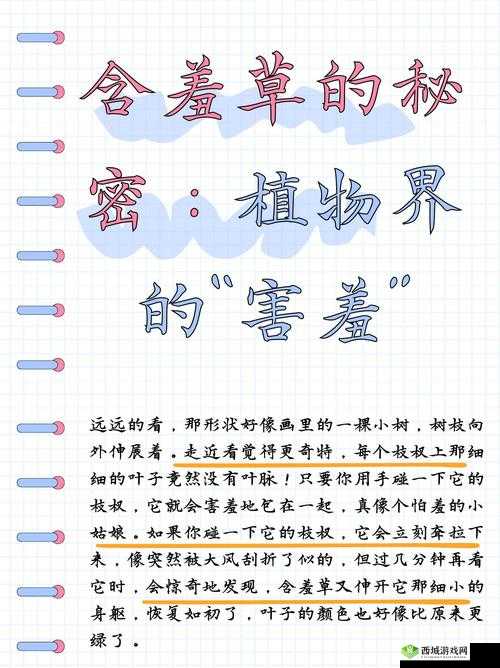 含羞草的秘
密：植物界
的“害羞”
远远的看，那形状好像画里的一棵小树，树枝向
外伸展着。走近看觉得更奇特，每个枝杈上那细
细的叶子竟然没有叶脉！只要你用手碰一下它的
枝杈，它就会害羞地包在一起，真像个怕羞的小
姑娘。如果你碰一下它的枝杈，它会立刻耷拉下
来，像突然被大风刮折了似的，但过几分钟再看
它时，会惊奇地发现，含羞草又伸开它那细小的
身躯，恢复如初了，叶子的颜色也好像比原来更
绿了。
西城游戏网